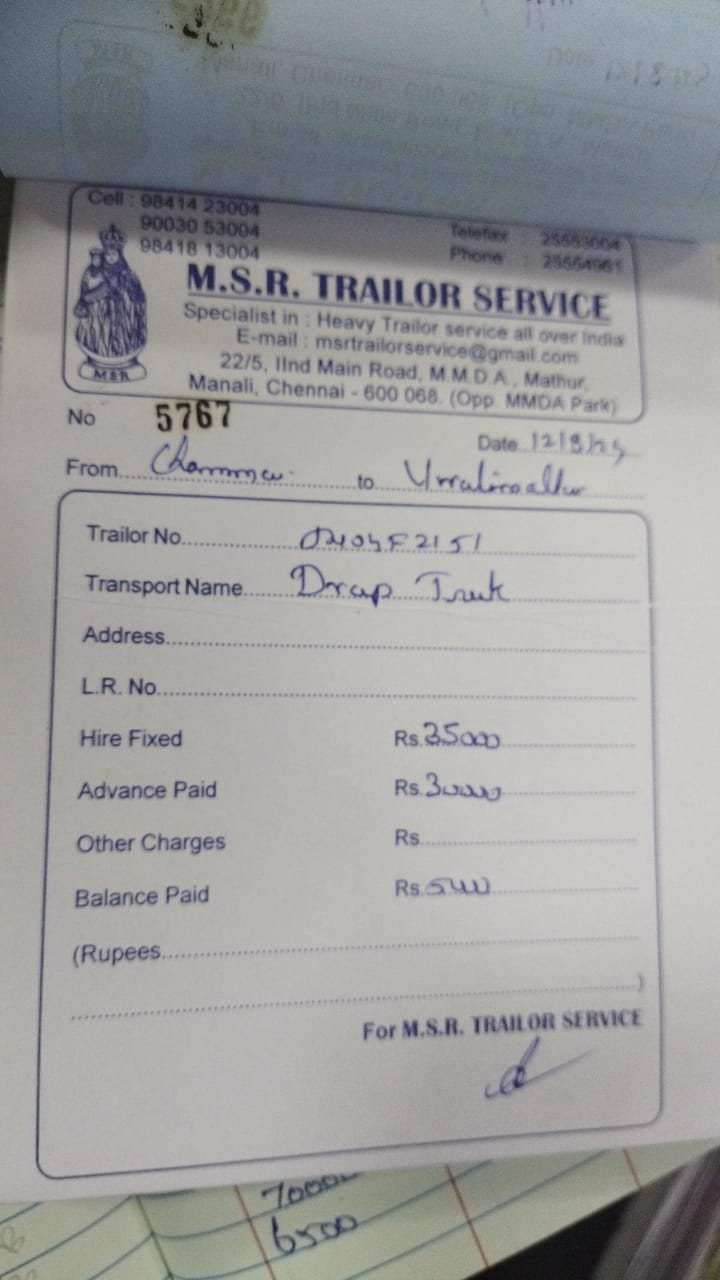 Cell : 98414 23004
90030 53004
98418 13004
Telefax : 25553004
Phone : 25554961
M.S.R. TRAILOR SERVICE
Specialist in : Heavy Trailor service all over India
E-mail : msrtrailorservice@gmail.com
22/5, IInd Main Road, M.M.D.A., Mathur,
Manali, Chennai - 600 068. (Opp. MMDA Park)
MSR
No 5767
Date 12/8/25
From to
Trailor No.
Transport Name
Address
L.R. No.
Hire Fixed Rs. 35000
Advance Paid Rs. 30000
Other Charges Rs.
Balance Paid Rs. 5000
(Rupees
)
For M.S.R. TRAILOR SERVICE
70000
6500